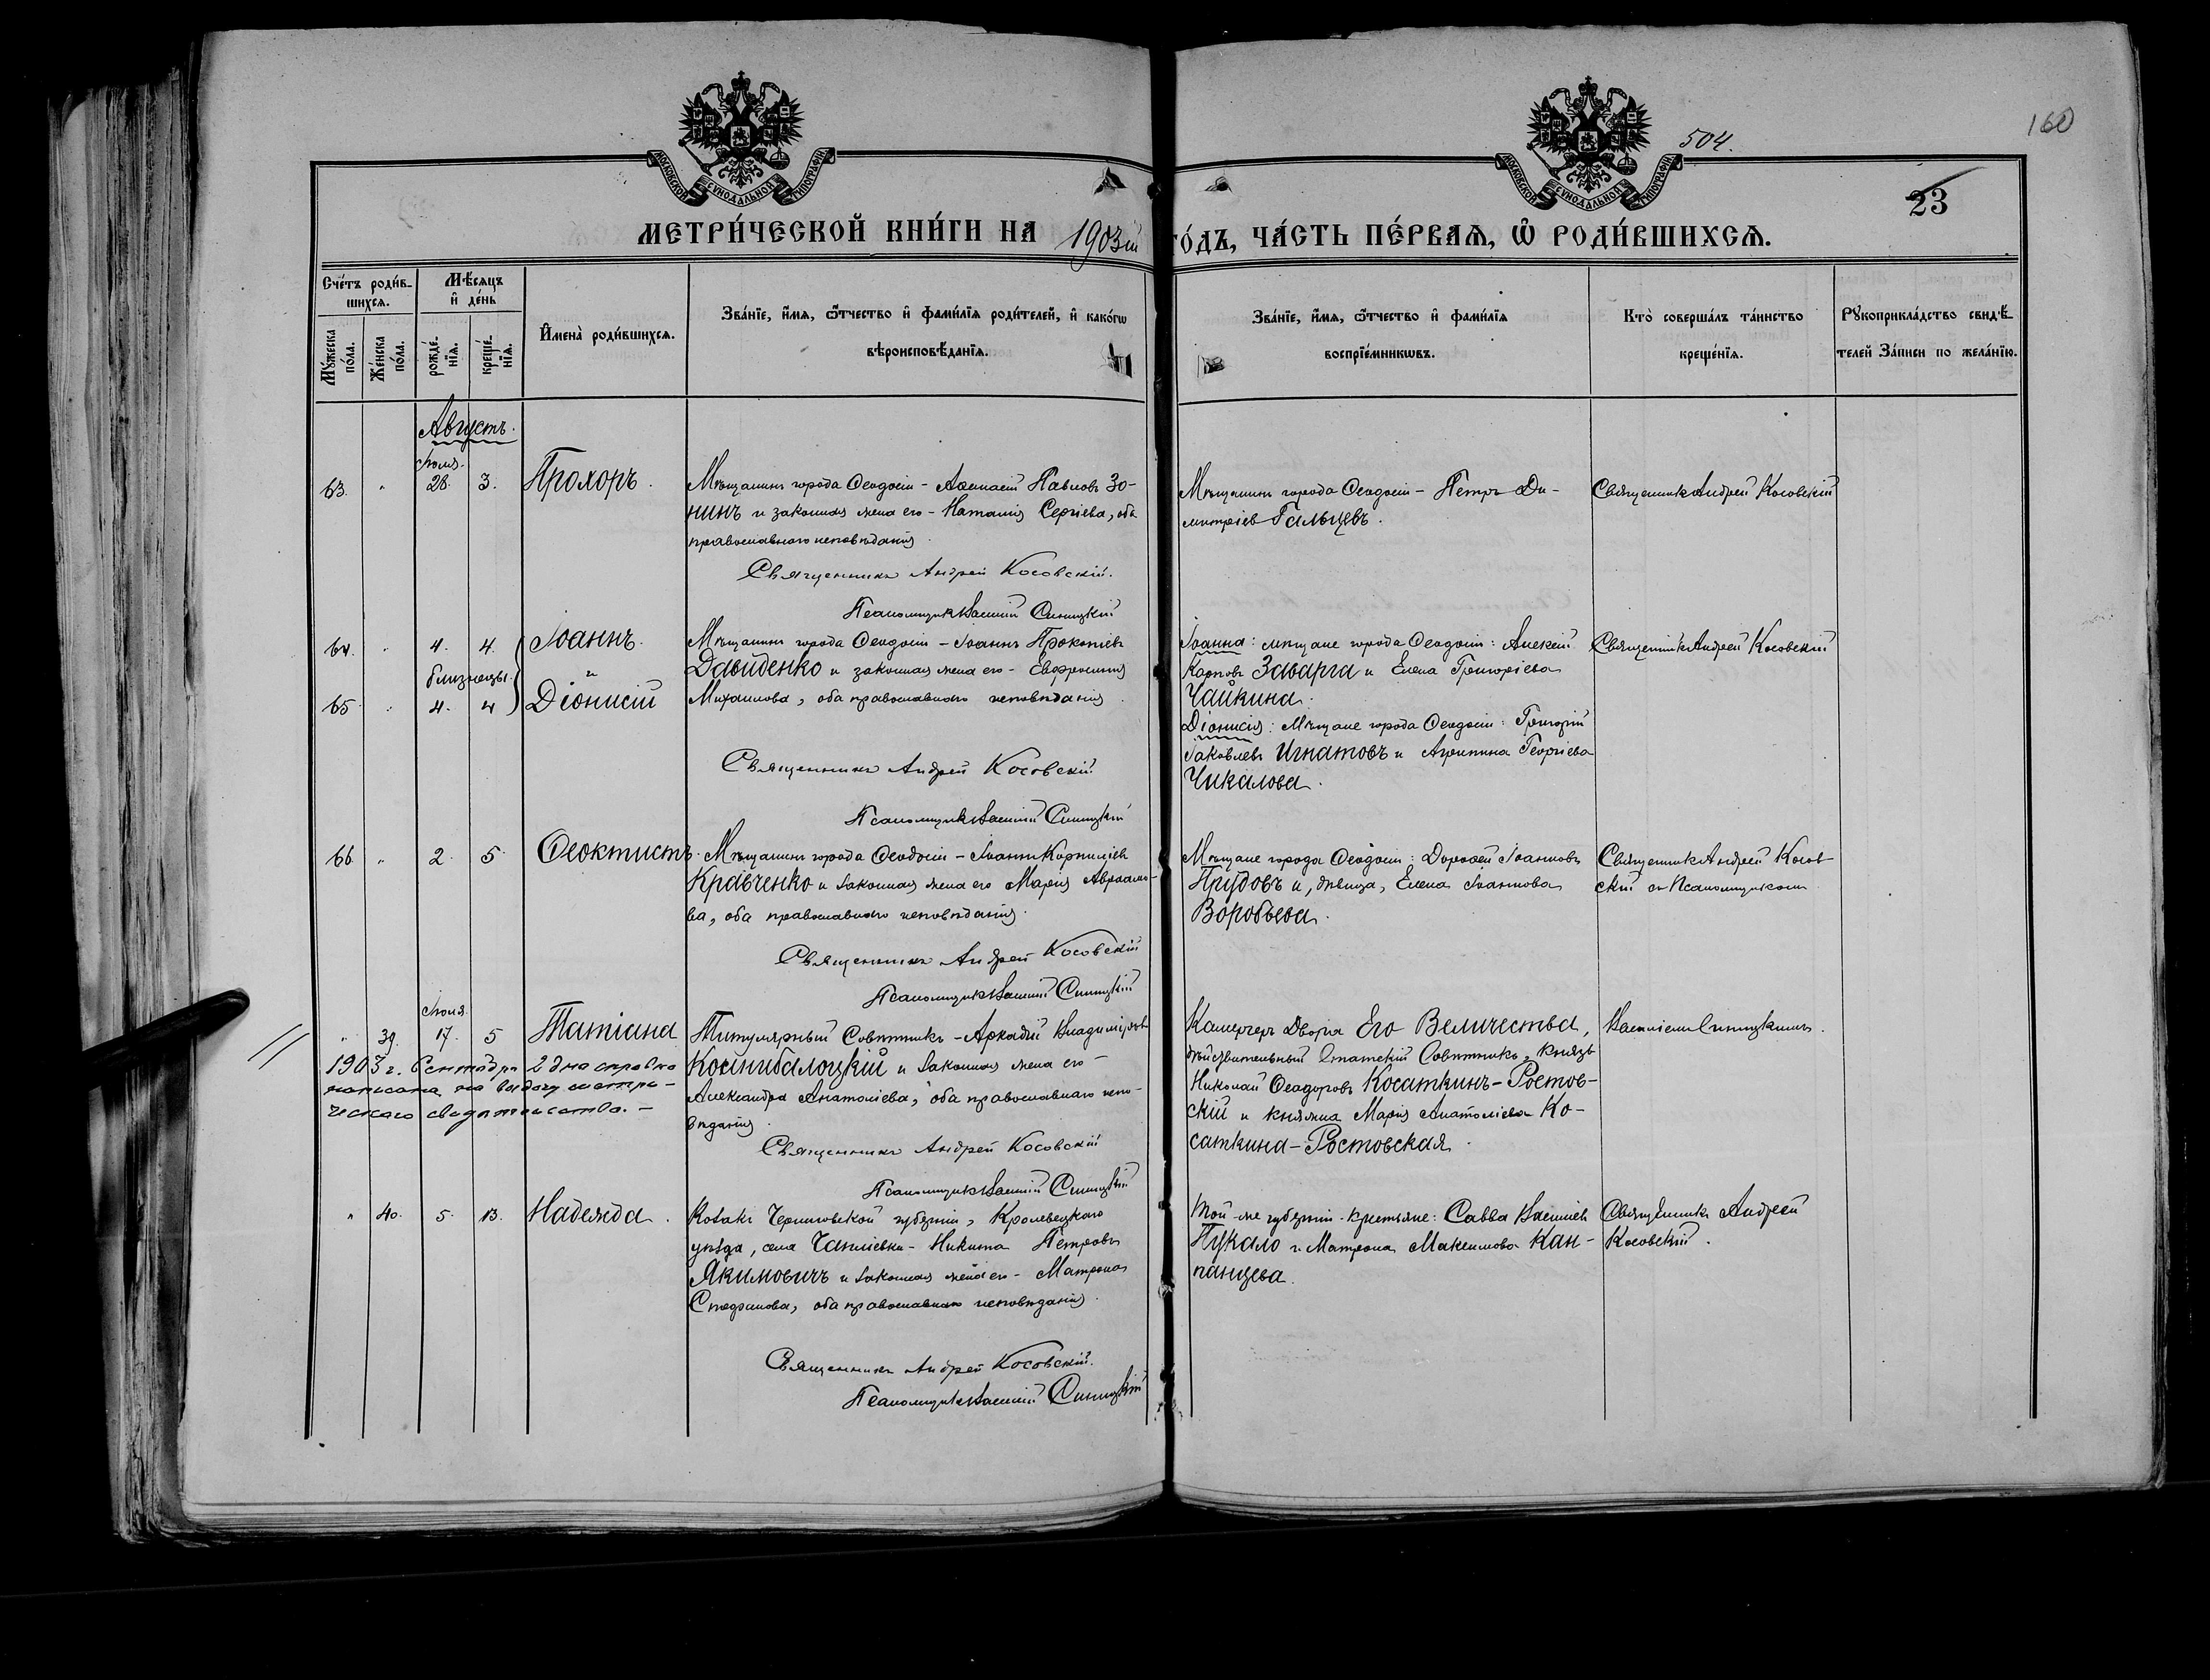 160
504.
23
МОСКОВСКОЙ СѴНОДАЛЬНОЙ ТИПОГРАФІИ
МОСКОВСКОЙ СѴНОДАЛЬНОЙ ТИПОГРАФІИ
МЕТРИ́ЧЕСКОЙ КНИ́ГИ НА 1903й ГО́ДЪ, ЧА́СТЬ ПЕ́РВАѦ, Ѡ҆ РОДИ́ВШИХСѦ.
Сче́тъ роди́в-
шихсѧ.
Мꙋ́жеска по́ла.
Же́нска по́ла.
Мѣ́сѧцъ
и҆ де́нь
рожде́нїѧ.
креще́нїѧ.
И҆мена̀ роди́вшихсѧ.
Зва́нїе, и҆́мѧ, ѻ҆́тчество и҆ фами́лїѧ роди́телей, и҆ како́гѡ
вѣроисповѣ́данїѧ.
Зва́нїе, и҆́мѧ, ѻ҆́тчество и҆ фами́лїѧ
воспрїе́мникѡвъ.
Кто̀ соверша́лъ та́инство
креще́нїѧ.
Рꙋкоприкла́дство свидѣ́-
телей За́писи по жела́нїю.
Августъ.
Іюля.
63. " 28. 3. Прохоръ.
Мѣщанинъ города Ѳеодосіи - Аѳанасій Павловъ Зо-
нинъ и законная жена его - Наталія Сергіева, оба
православнаго исповѣданія.
Священникъ Андрей Косовскій.
Псаломщикъ Василій Синицкій
Мѣщанинъ города Ѳеодосіи - Петръ Ди-
митріевъ Гальцевъ.
Священникъ Андрей Косовскій
64. " 4. 4. Іоаннъ.
близнецы. и
65. " 4. 4 Діонисій
Мѣщанинъ города Ѳеодосіи - Іоаннъ Прокопіевъ
Давиденко и законная жена его - Евфросинія
Михаилова, оба православнаго исповѣданія.
Священникъ Андрей Косовскій
Псаломщикъ Василій Синицкій
Іоанна: мѣщане города Ѳеодосіи: Алексій
Карповъ Заварга и Елена Григоріева
Чайкина.
Діонисія: Мѣщане города Ѳеодосіи: Григорій
Іаковлевъ Игнатовъ и Агрипина Георгіева
Чикалова.
Священникъ Андрей Косовскій
66. " 2. 5. Ѳеоктистъ.
Мѣщанинъ города Ѳеодосіи - Іоаннъ Корниліевъ
Кравченко и законная жена его Марія Авраамо-
ва, оба православнаго исповѣданія.
Священникъ Андрей Косовскій
Псаломщикъ Василій Синицкій
Мѣщане города Ѳеодосіи: Дороѳей Іоанновъ
Прудовъ и, дѣвица, Елена Іоаннова
Воробьева.
Священникъ Андрей Косов-
скій съ Псаломщикомъ
Іюля
" 39. 17. 5 Татіана
1903 г. Сентября 2 дня справка
написана на выдачу метри-
ческаго свидѣтельства. -
Титулярный Совѣтникъ - Аркадій Владиміровъ
и законная жена его -
Александра Анатоліева, оба православнаго испо-
вѣданія.
Священникъ Андрей Косовскій
Псаломщикъ Василій Синицкій
Камергеръ Двора Его Величества,
дѣйствительный Статскій Совѣтникъ, князь
Николай Ѳеодоровъ Косаткинъ-Ростов-
скій и княжна Марія Анатоліева Ко-
саткина-Ростовская.
Василіемъ Синицкимъ.
" 40. 5. 13. Надежда.
Козакъ Черниговской губерніи, Кролевецкаго
уѣзда, села - Никита Петровъ
Якимовичъ и законная жена его - Матрона
Спиридонова, оба православнаго исповѣданія.
Священникъ Андрей Косовскій.
Псаломщикъ Василій Синицкій
Той-же губерніи - крестьяне: Савва Василіевъ
Пукало и Матрона Максимова Кан-
панцева.
Священникъ Андрей
Косовскій.